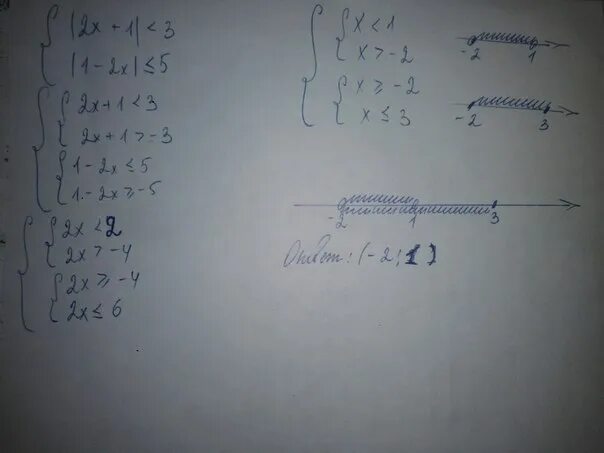 |2x + 1| < 3
|1 - 2x| ≤ 5
2x + 1 < 3
2x + 1 > -3
1 - 2x ≤ 5
1 - 2x ≥ -5
2x < 2
2x > -4
2x ≥ -4
2x ≤ 6
x < 1
x > -2
x ≥ -2
x ≤ 3
-2 1
-2 3
-2 1 3
Ответ: (-2; 1)